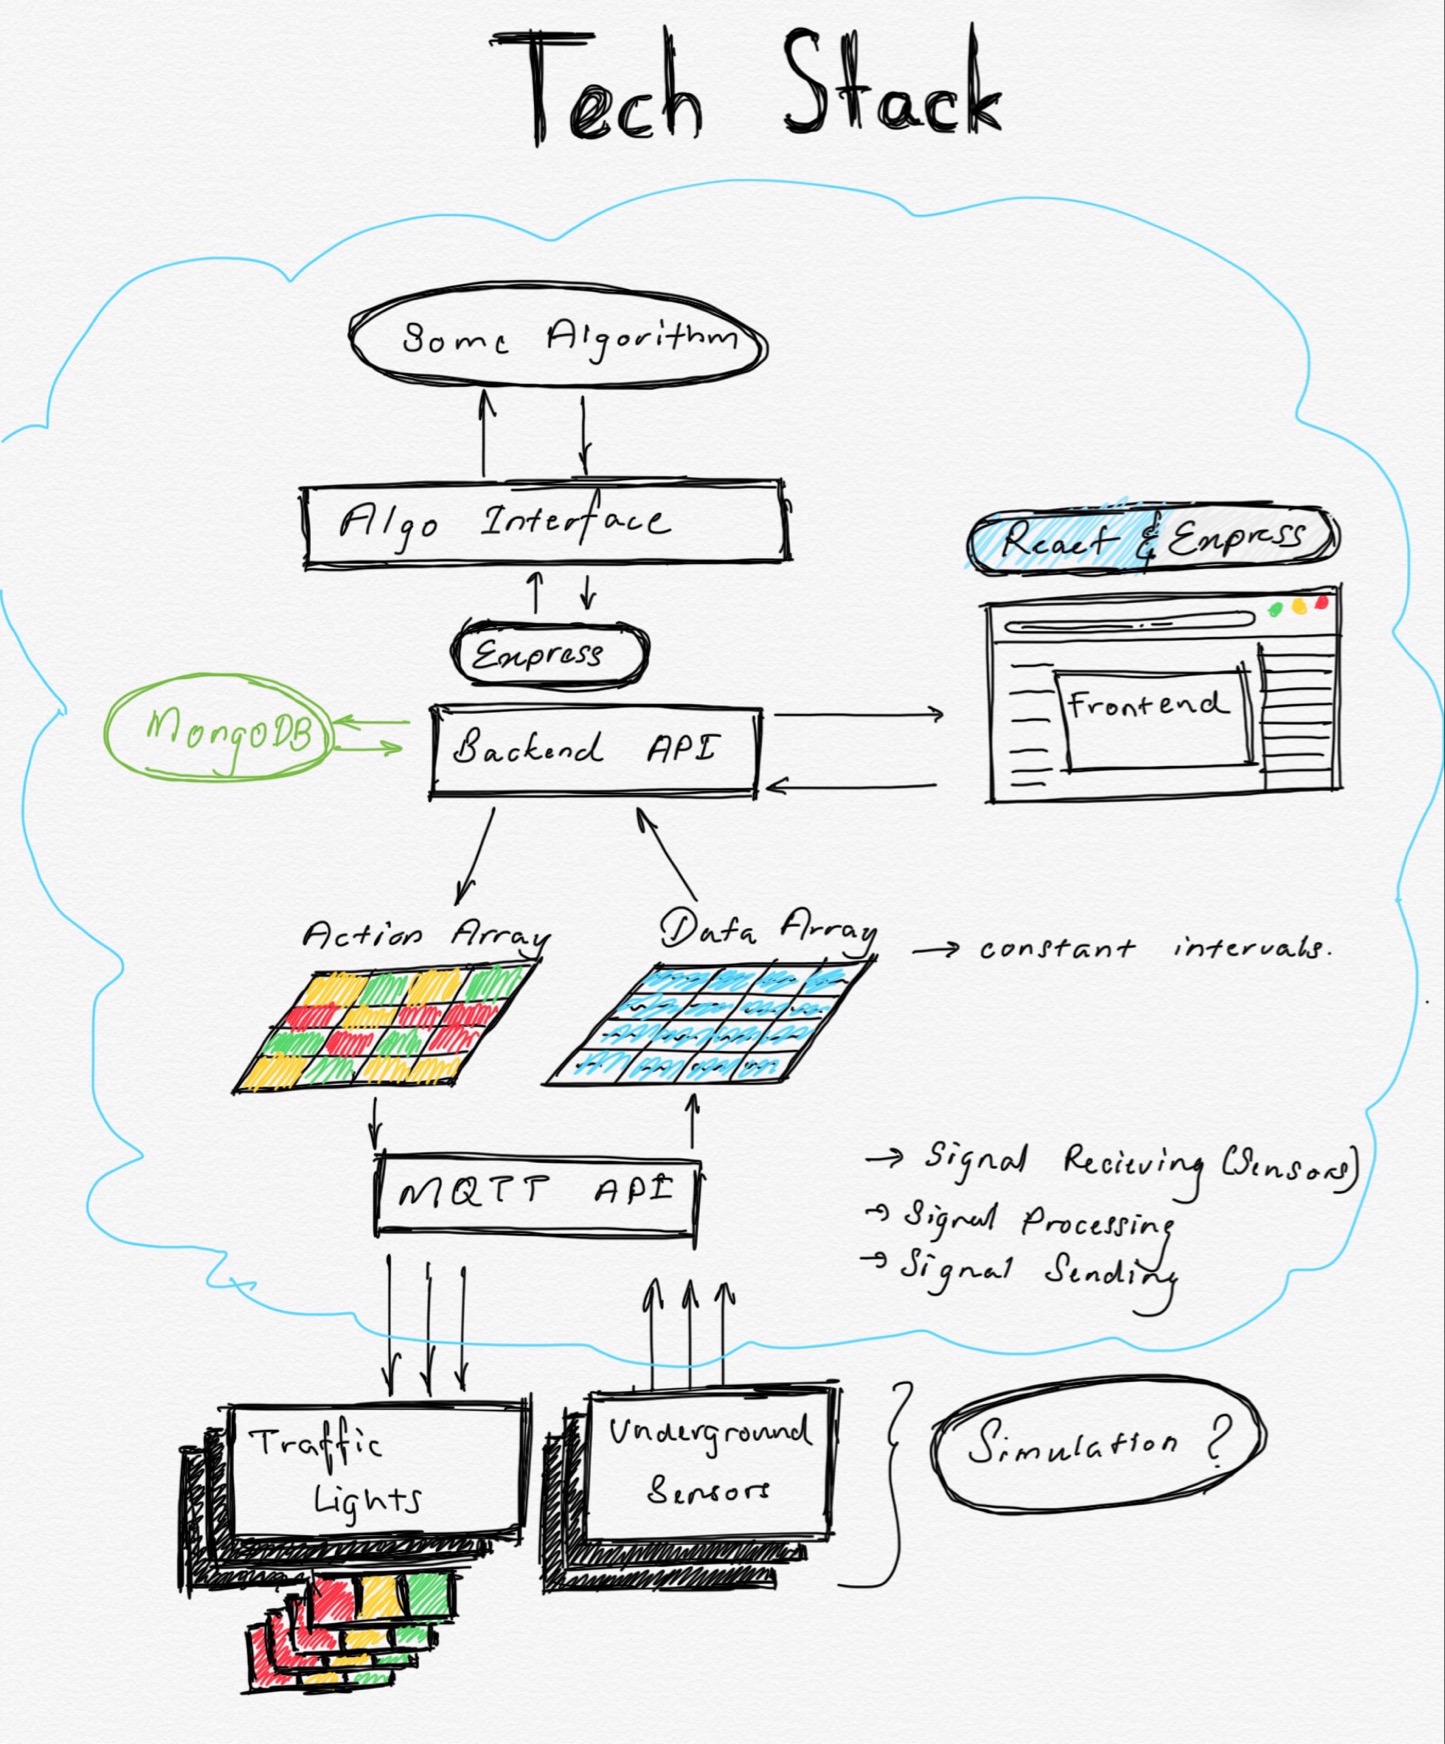 Tech Stack
Some Algorithm
Algo Interface
React & Express
Express
Frontend
MongoDB
Backend API
Action Array
Data Array
→ constant intervals.
MQTT API
→ Signal Recieving (Sensors)
→ Signal Processing
→ Signal Sending
Traffic
Lights
Underground
Sensors
Simulation ?